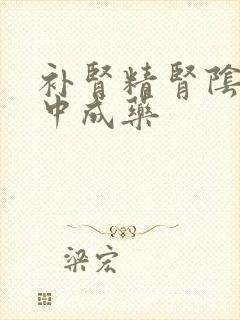 补腎精腎陰
中成藥
梁宏